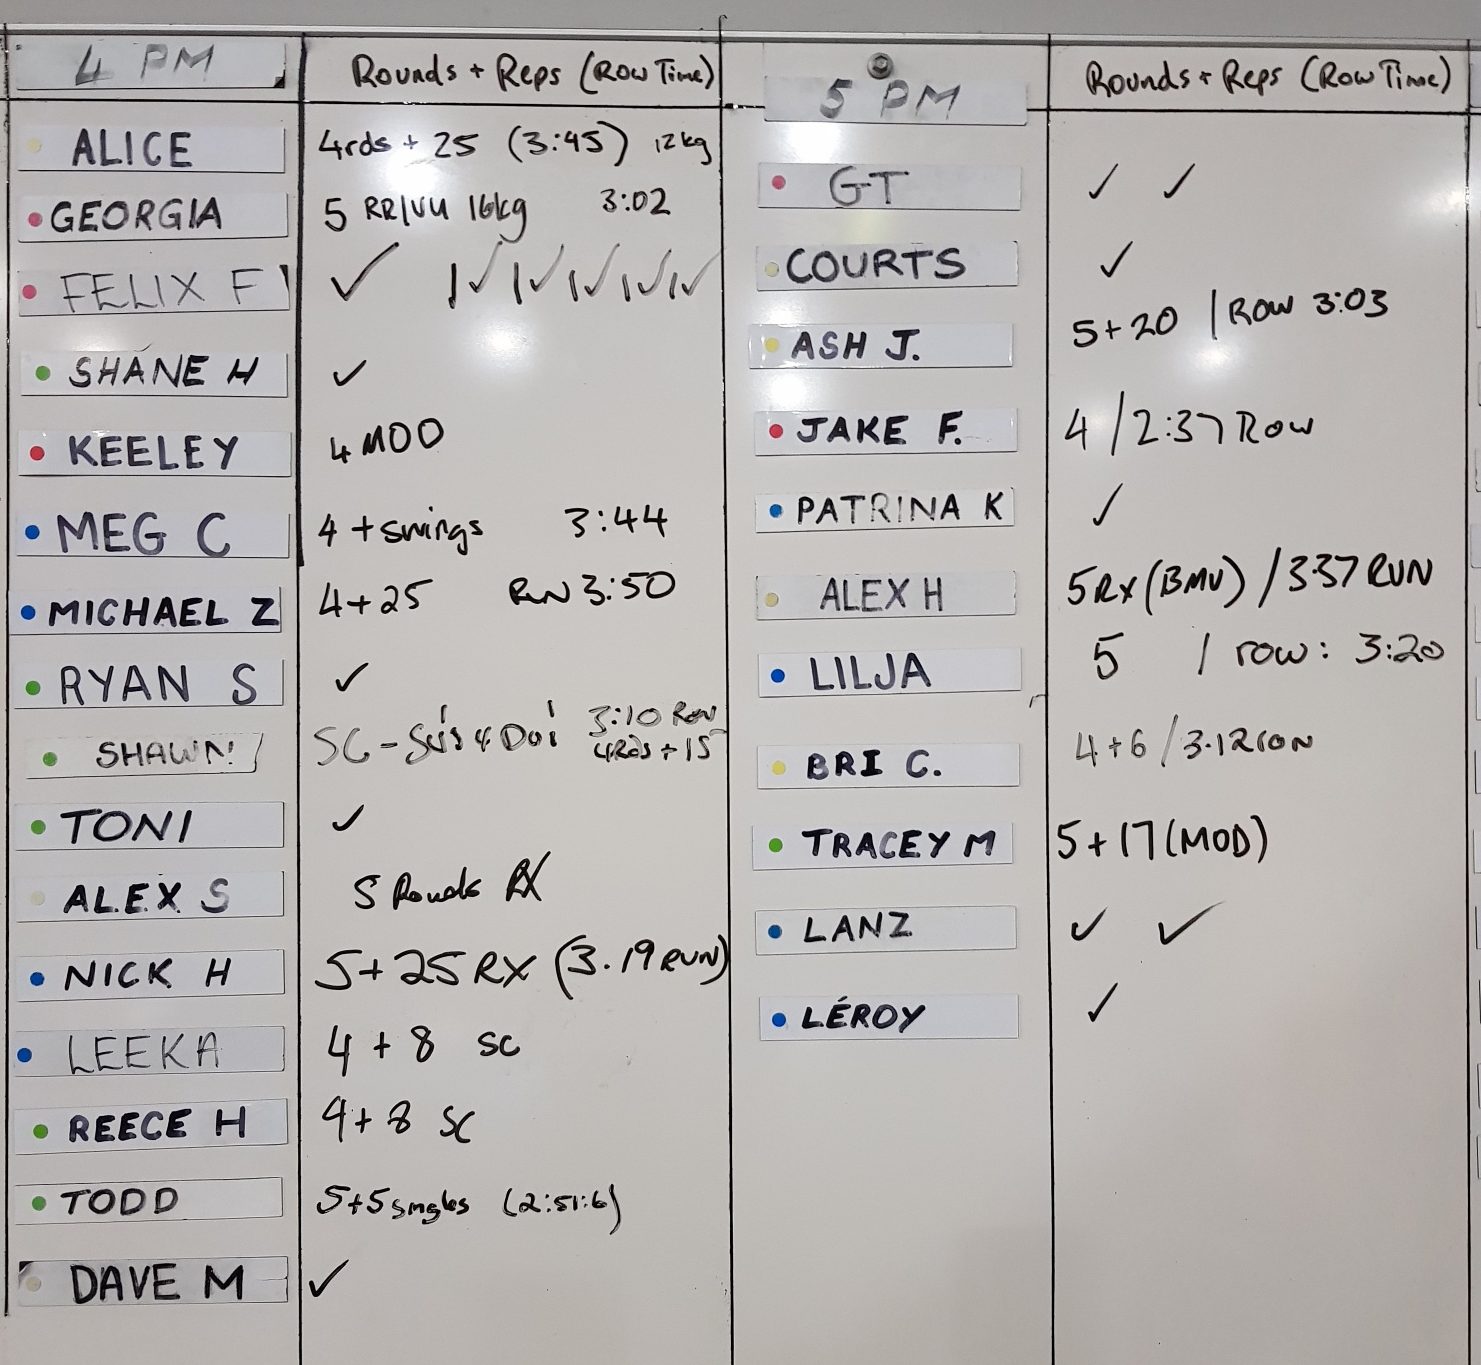 4 PM
Rounds + Reps (Row Time)
ALICE
4rds + 25 (3:45) 12kg
GEORGIA
5 RR/VU 16kg 3:02
FELIX F
✓ ✓ ✓ ✓ ✓ ✓
SHANE H
✓
KEELEY
4 MOD
MEG C
4 + swings 3:44
MICHAEL Z
4+25 RUN 3:50
RYAN S
✓
SHAWN!
SC - 3:10 Row
4Rds + 15
TONI
✓
ALEX S
5 Rounds RX
NICK H
5+25 RX (3.19 RUN)
LEEKA
4 + 8 SC
REECE H
4+8 SC
TODD
5+5 singles (2:51:6)
DAVE M
✓
5 PM
Rounds + Reps (Row Time)
GT
✓ ✓
COURTS
✓
ASH J.
5+20 / ROW 3:03
JAKE F.
4 / 2:37 Row
PATRINA K
✓
ALEX H
5 RX (BMU) / 3:37 RUN
LILJA
5 / row: 3:20
BRI C.
4+6 / 3.12 row
TRACEY M
5+17 (MOD)
LANZ
✓ ✓
LÉROY
✓